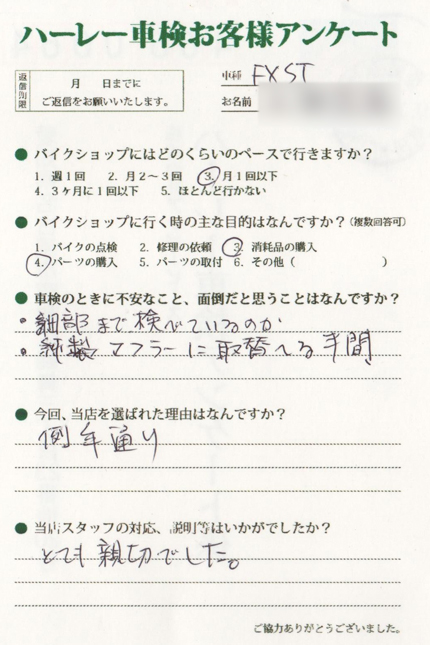 ハーレー車検お客様アンケート
返信期限
月 日までに
ご返信をお願いいたします。
車種 FXST
お名前
●バイクショップにはどのくらいのペースで行きますか?
1. 週1回 2. 月2～3回 3. 月1回以下
4. 3ヶ月に1回以下 5. ほとんど行かない
●バイクショップに行く時の主な目的はなんですか?(複数回答可)
1. バイクの点検 2. 修理の依頼 3. 消耗品の購入
4. パーツの購入 5. パーツの取付 6. その他( )
●車検のときに不安なこと、面倒だと思うことはなんですか?
・細部まで検べているのか
・純製マフラーに取替へる手間
●今回、当店を選ばれた理由はなんですか?
例年通り
●当店スタッフの対応、説明等はいかがでしたか?
とても親切でした。
ご協力ありがとうございました。